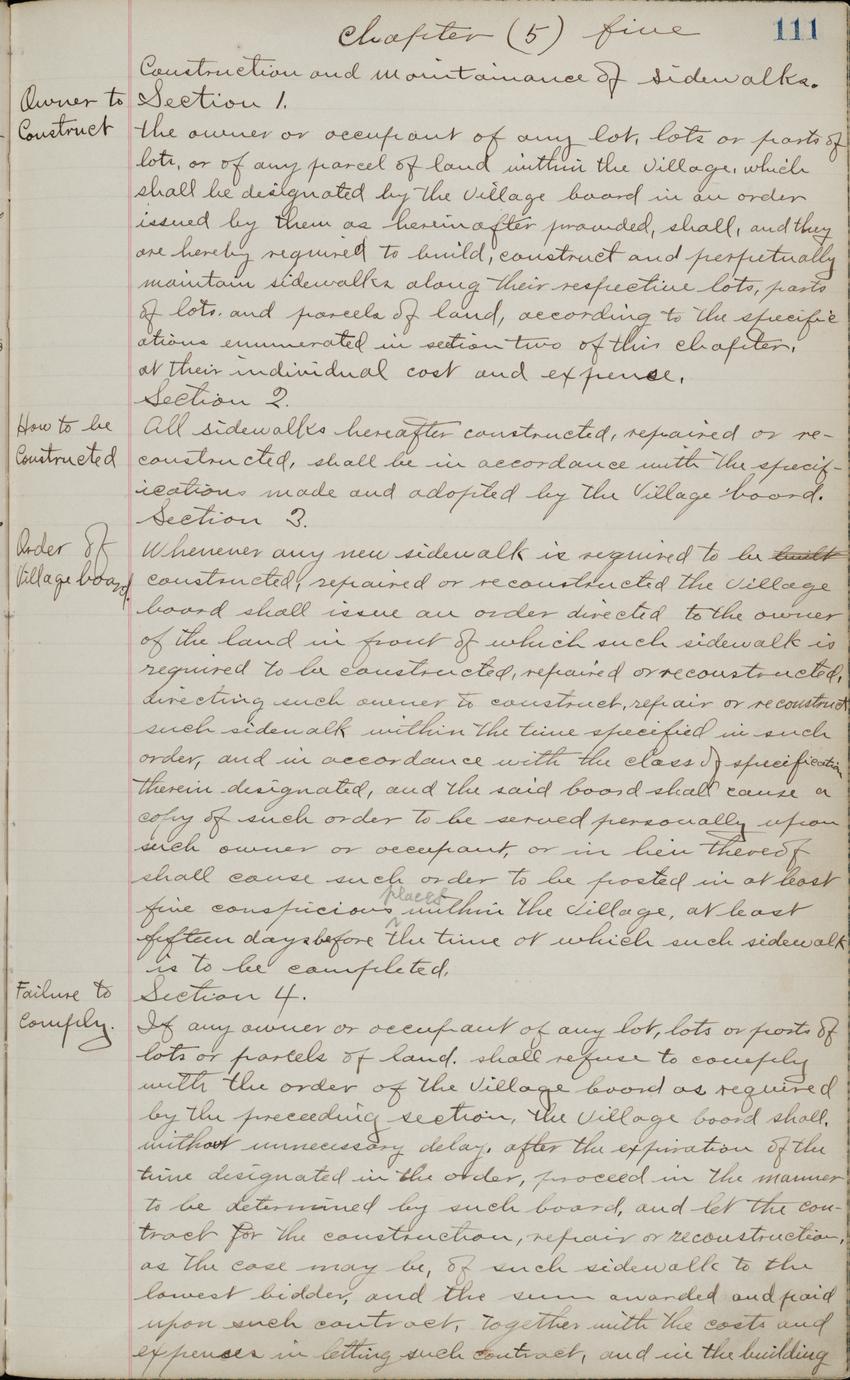 111
Chapter (5) five
Construction and maintainance of sidewalks.
Owner to
Construct
Section 1.
the owner or occupant of any lot, lots or parts of
lots, or of any parcel of land within the Village, which
shall be designated by the Village board in an order
issued by them as hereinafter provided, shall, and they
are hereby required to build, construct and perpetually
maintain sidewalks along their respective lots, parts
of lots. and parcels of land, according to the specific
ations enumerated in section two of this chapter,
at their individual cost and expense.
Section 2.
How to be
Constructed
All sidewalks hereafter constructed, repaired or re-
constructed, shall be in accordance with the specif-
ications made and adopted by the Village board.
Section 3.
Order of
Village board.
Whenever any new sidewalk is required to be built
constructed, repaired or reconstructed the Village
board shall issue an order directed to the owner
of the land in front of which such sidewalk is
required to be constructed, repaired or reconstructed,
directing such owner to construct, repair or reconstruct
such sidewalk within the time specified in such
order, and in accordance with the class of specification
therein designated, and the said board shall cause a
copy of such order to be served personally upon
such owner or occupant, or in lieu thereof
shall cause such order to be posted in at least
five conspicious places within the Village, at least
fifteen days before the time at which such sidewalk
is to be completed.
Section 4.
Failure to
Comply.
If any owner or occupant of any lot, lots or parts of
lots or parcels of land. shall refuse to comply
with the order of the Village board as required
by the preceeding section, the Village board shall,
without unnecessary delay, after the expiration of the
time designated in the order, proceed in the manner
to be determined by such board, and let the con-
tract for the construction, repair or reconstruction,
as the case may be, of such sidewalk to the
lowest bidder, and the sum awarded and paid
upon such contract, together with the costs and
expences in letting such contract, and in the building